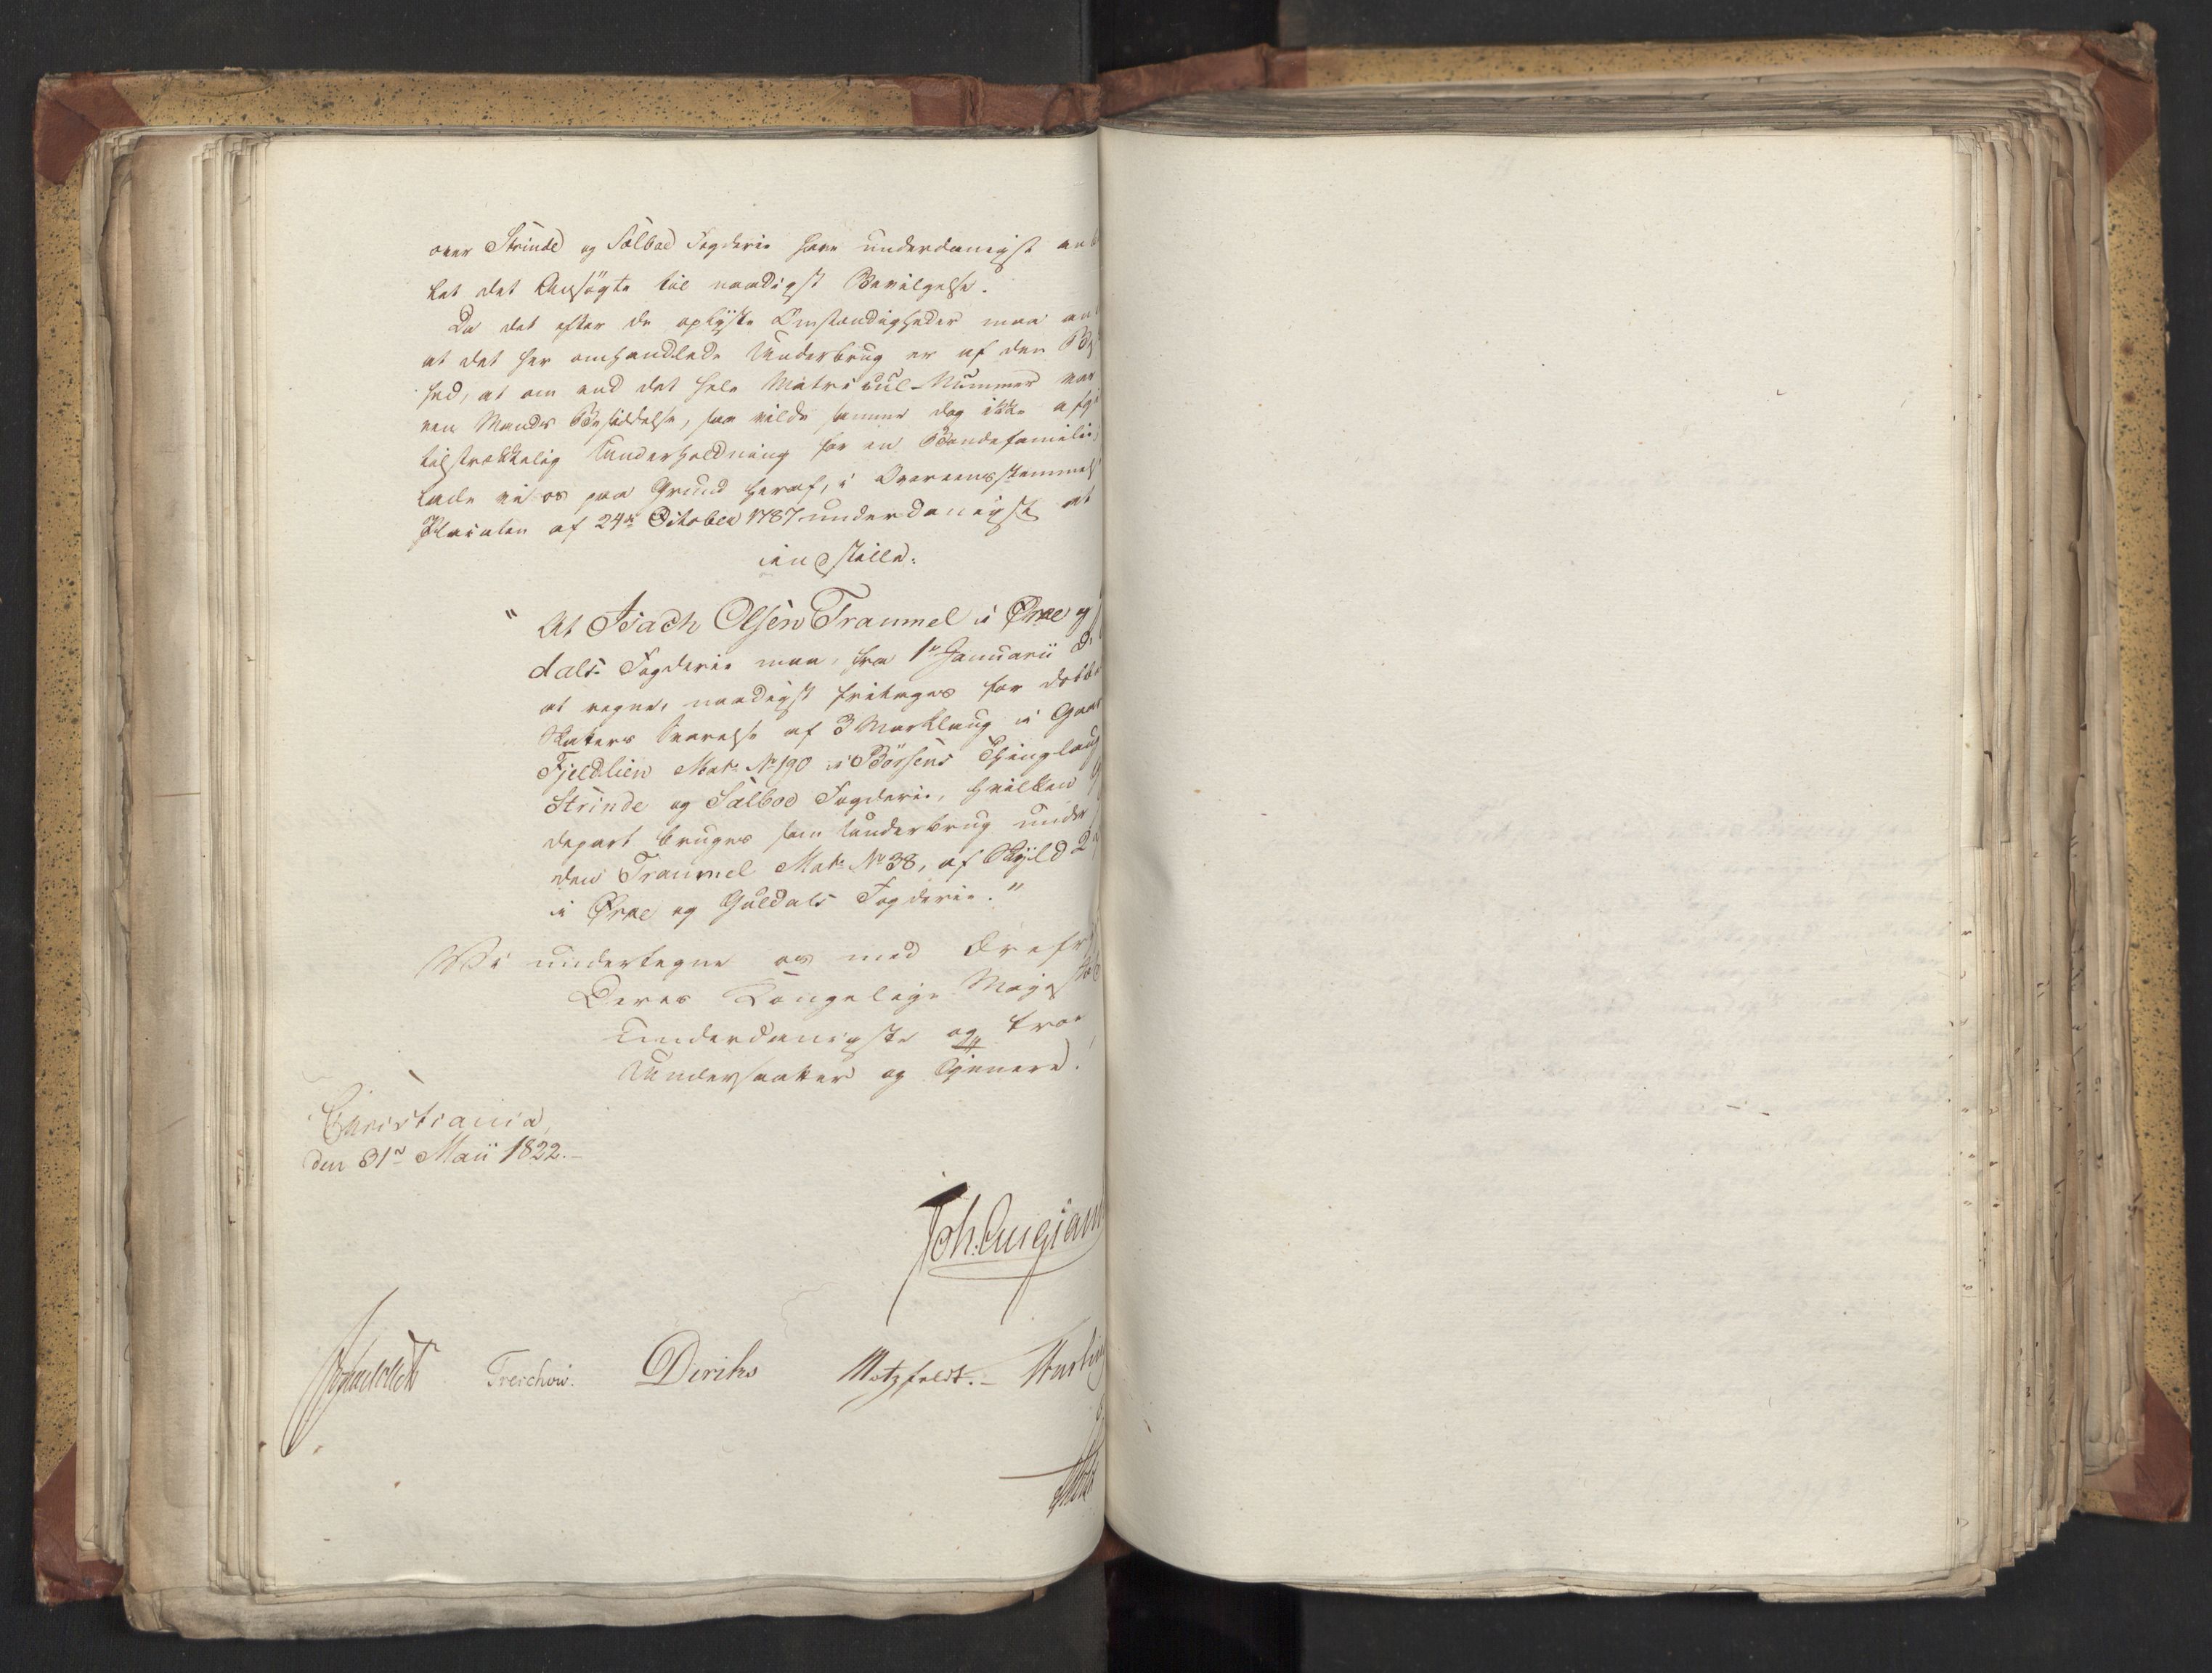 over Strinde og Sælboe Fogderie have underdanigst an
let det Ansøgte til naadigst Bevilgelse.
Da det efter de oplyste Omstændigheder maa an
at det her omhandlede Underbrug er af den
hed, at om end det hele Matricul-Nummer var
een Mands Besiddelse, saa vilde samme dog ikke afgi
tilstrækkelig Underholdning for en Bondefamilie,
lade vi os paa Grund heraf, i Overeensstemmels
Placaten af 24de October 1787 underdanigst at
indstille:
"At Isach Olsen Traumel i Ørke og
dals Fogderie maa, fra 1ste Januarii
at regne, naadigst fritages for dobb
Skatters Svarelse af 3 Marklaug i Gaar
Fjeldlien Mat: No 190 i Børsens Thinglaug
Strinde og Sælboe Fogderie, hvilken
depart bruges som Underbrug under
den Traumel Mat: No 38, af Skyld 2
i Ørke og Guldals Fogderie."
Vi undertegne os med Ærefr
Deres Kongelige Majestæt
Underdanigste og troe
Undersaatter og Tjenere.
Christiania,
den 31te Maii 1822.
Joh. Collett Treschow. Diriks Motzfeldt.